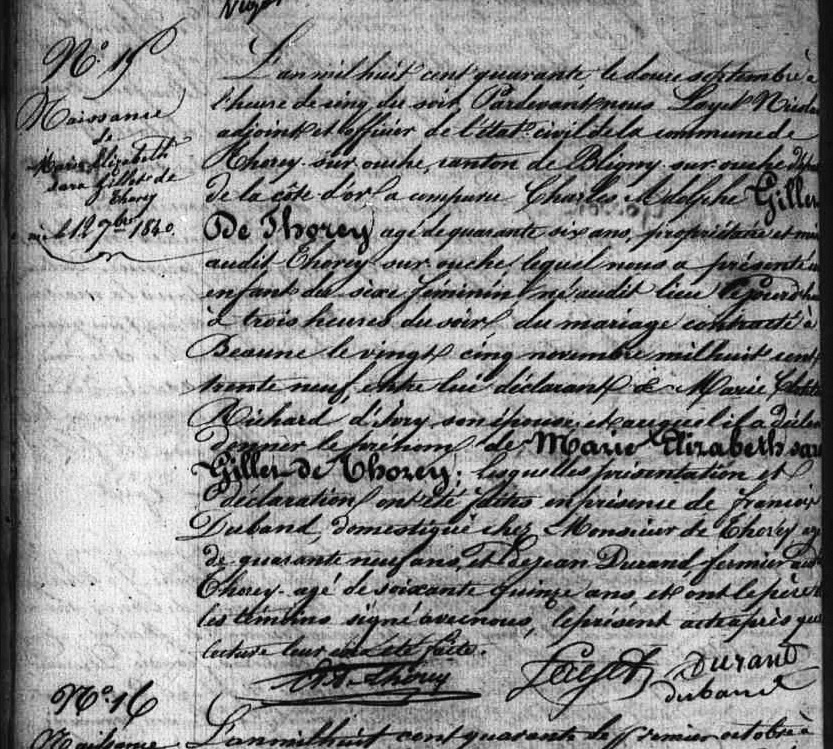 N°. 15
Naissance
de
Marie Elizabeth
Sara Gillet de
Thorey
né le 12 7bre 1840
L'an mil huit cent quarante le douze septembre à
l'heure de cinq du soir, Pardevant nous Layet
adjoint et officier de l'état civil de la commune de
Thorey sur ouche, canton de Bligny sur ouche
de la côte d'or a comparu Charles Adolphe Gillet
De Thorey agé de quarante six ans, propriétaire et
audit Thorey sur ouche, lequel nous a présenté un
enfant du sexe féminin né audit lieu
à trois heures du soir du mariage contracté à
Beaune le vingt cinq novembre mil huit cent
trente neuf, entre lui déclarant & Marie
Richard d'Ivry son épouse et auquel il a déclaré
donner le prénom de Marie Elizabeth Sara
Gillet de Thorey; lesquelles présentation et
déclaration ont été faites en présence de francois
Duband, domestique chez Monsieur de Thorey agé
de quarante neuf ans, et de jean Durand, fermier audit
Thorey agé de soixante quinze ans, et ont le père et
les témoins signé avec nous, le présent acte après que
lecture leur en a été faite.
Layet Durand
duband
N°. 16
Naissance
L'an mil huit cent quarante le premier octobre à